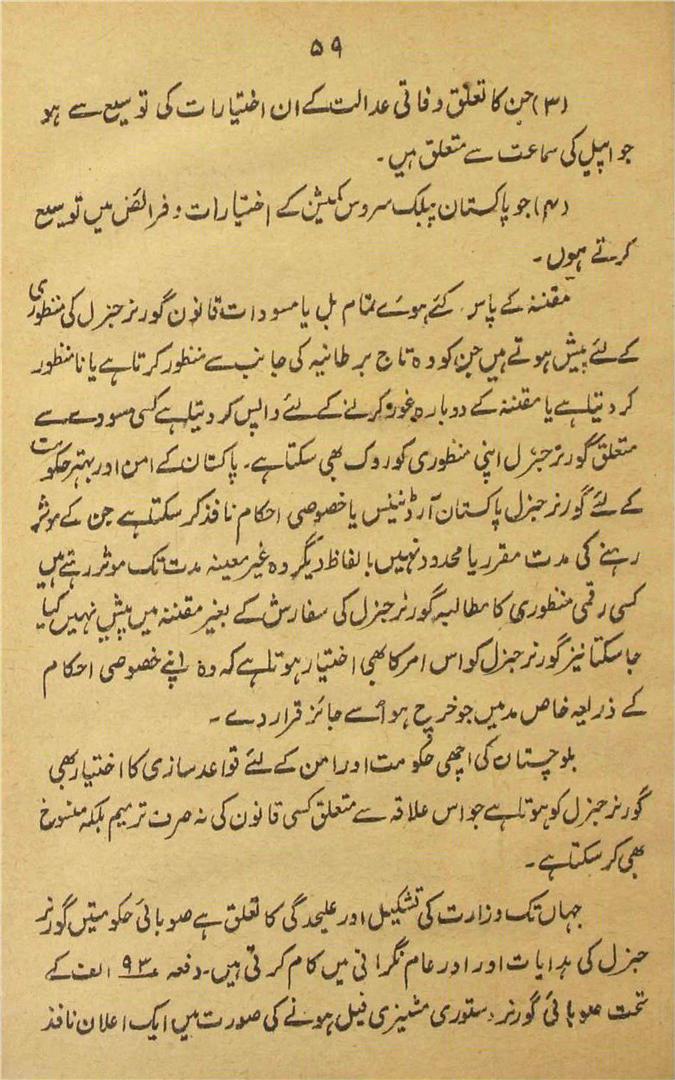 ۵۹
(۳) جن کا تعلق وفاقی عدالت کے ان اختیارات کی توسیع سے ہو
جو اپیل کی سماعت سے متعلق ہیں۔
(۴) جو پاکستان پبلک سروس کمیشن کے اختیارات و فرائض میں توسیع
کرتے ہوں۔
مقننہ کے پاس کئے ہوئے تمام بل یا مسودات قانون گورنر جنرل کی منظوری
کے لئے پیش ہوتے ہیں جن کو وہ تاج برطانیہ کی جانب سے منظور کرتا ہے یا نا منظور
کر دیتا ہے یا مقننہ کے دوبارہ غور کرنے کے لئے واپس کر دیتا ہے کسی مسودے سے
متعلق گورنر جنرل اپنی منظوری کو روک بھی سکتا ہے۔ پاکستان کے امن اور بہتر حکومت
کے لئے گورنر جنرل پاکستان آرڈیننس یا خصوصی احکام نافذ کر سکتا ہے جن کے موثر
رہنے کی مدت مقرر یا محدود نہیں بالفاظ دیگر وہ غیر معینہ مدت تک موثر رہتے ہیں
کسی رقمی منظوری کا مطالبہ گورنر جنرل کی سفارش کے بغیر مقننہ میں پیش نہیں کیا
جا سکتا نیز گورنر جنرل کو اس امر کا بھی اختیار ہوتا ہے کہ وہ اپنے خصوصی احکام
کے ذریعہ خاص مد میں جو خرچ ہو اسے جائز قرار دے۔
بلوچستان کی اچھی حکومت اور امن کے لئے قواعد سازی کا اختیار بھی
گورنر جنرل کو ہوتا ہے جو اس علاقہ سے متعلق کسی قانون کی نہ صرف ترمیم بلکہ منسوخ
بھی کر سکتا ہے۔
جہاں تک وزارت کی تشکیل اور علیحدگی کا تعلق ہے صوبائی حکومتیں گورنر
جنرل کی ہدایات اور اور عام نگرانی میں کام کرتی ہیں۔ دفعہ ۹۳ الف کے
تحت صوبائی گورنر دستوری مشینری فیل ہونے کی صورت میں ایک اعلان نافذ